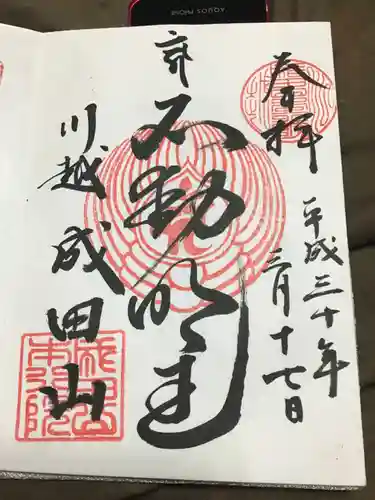 AQUOS PHONE
奉拝
平成三十年
三月十七日
不動明王
川越成田山